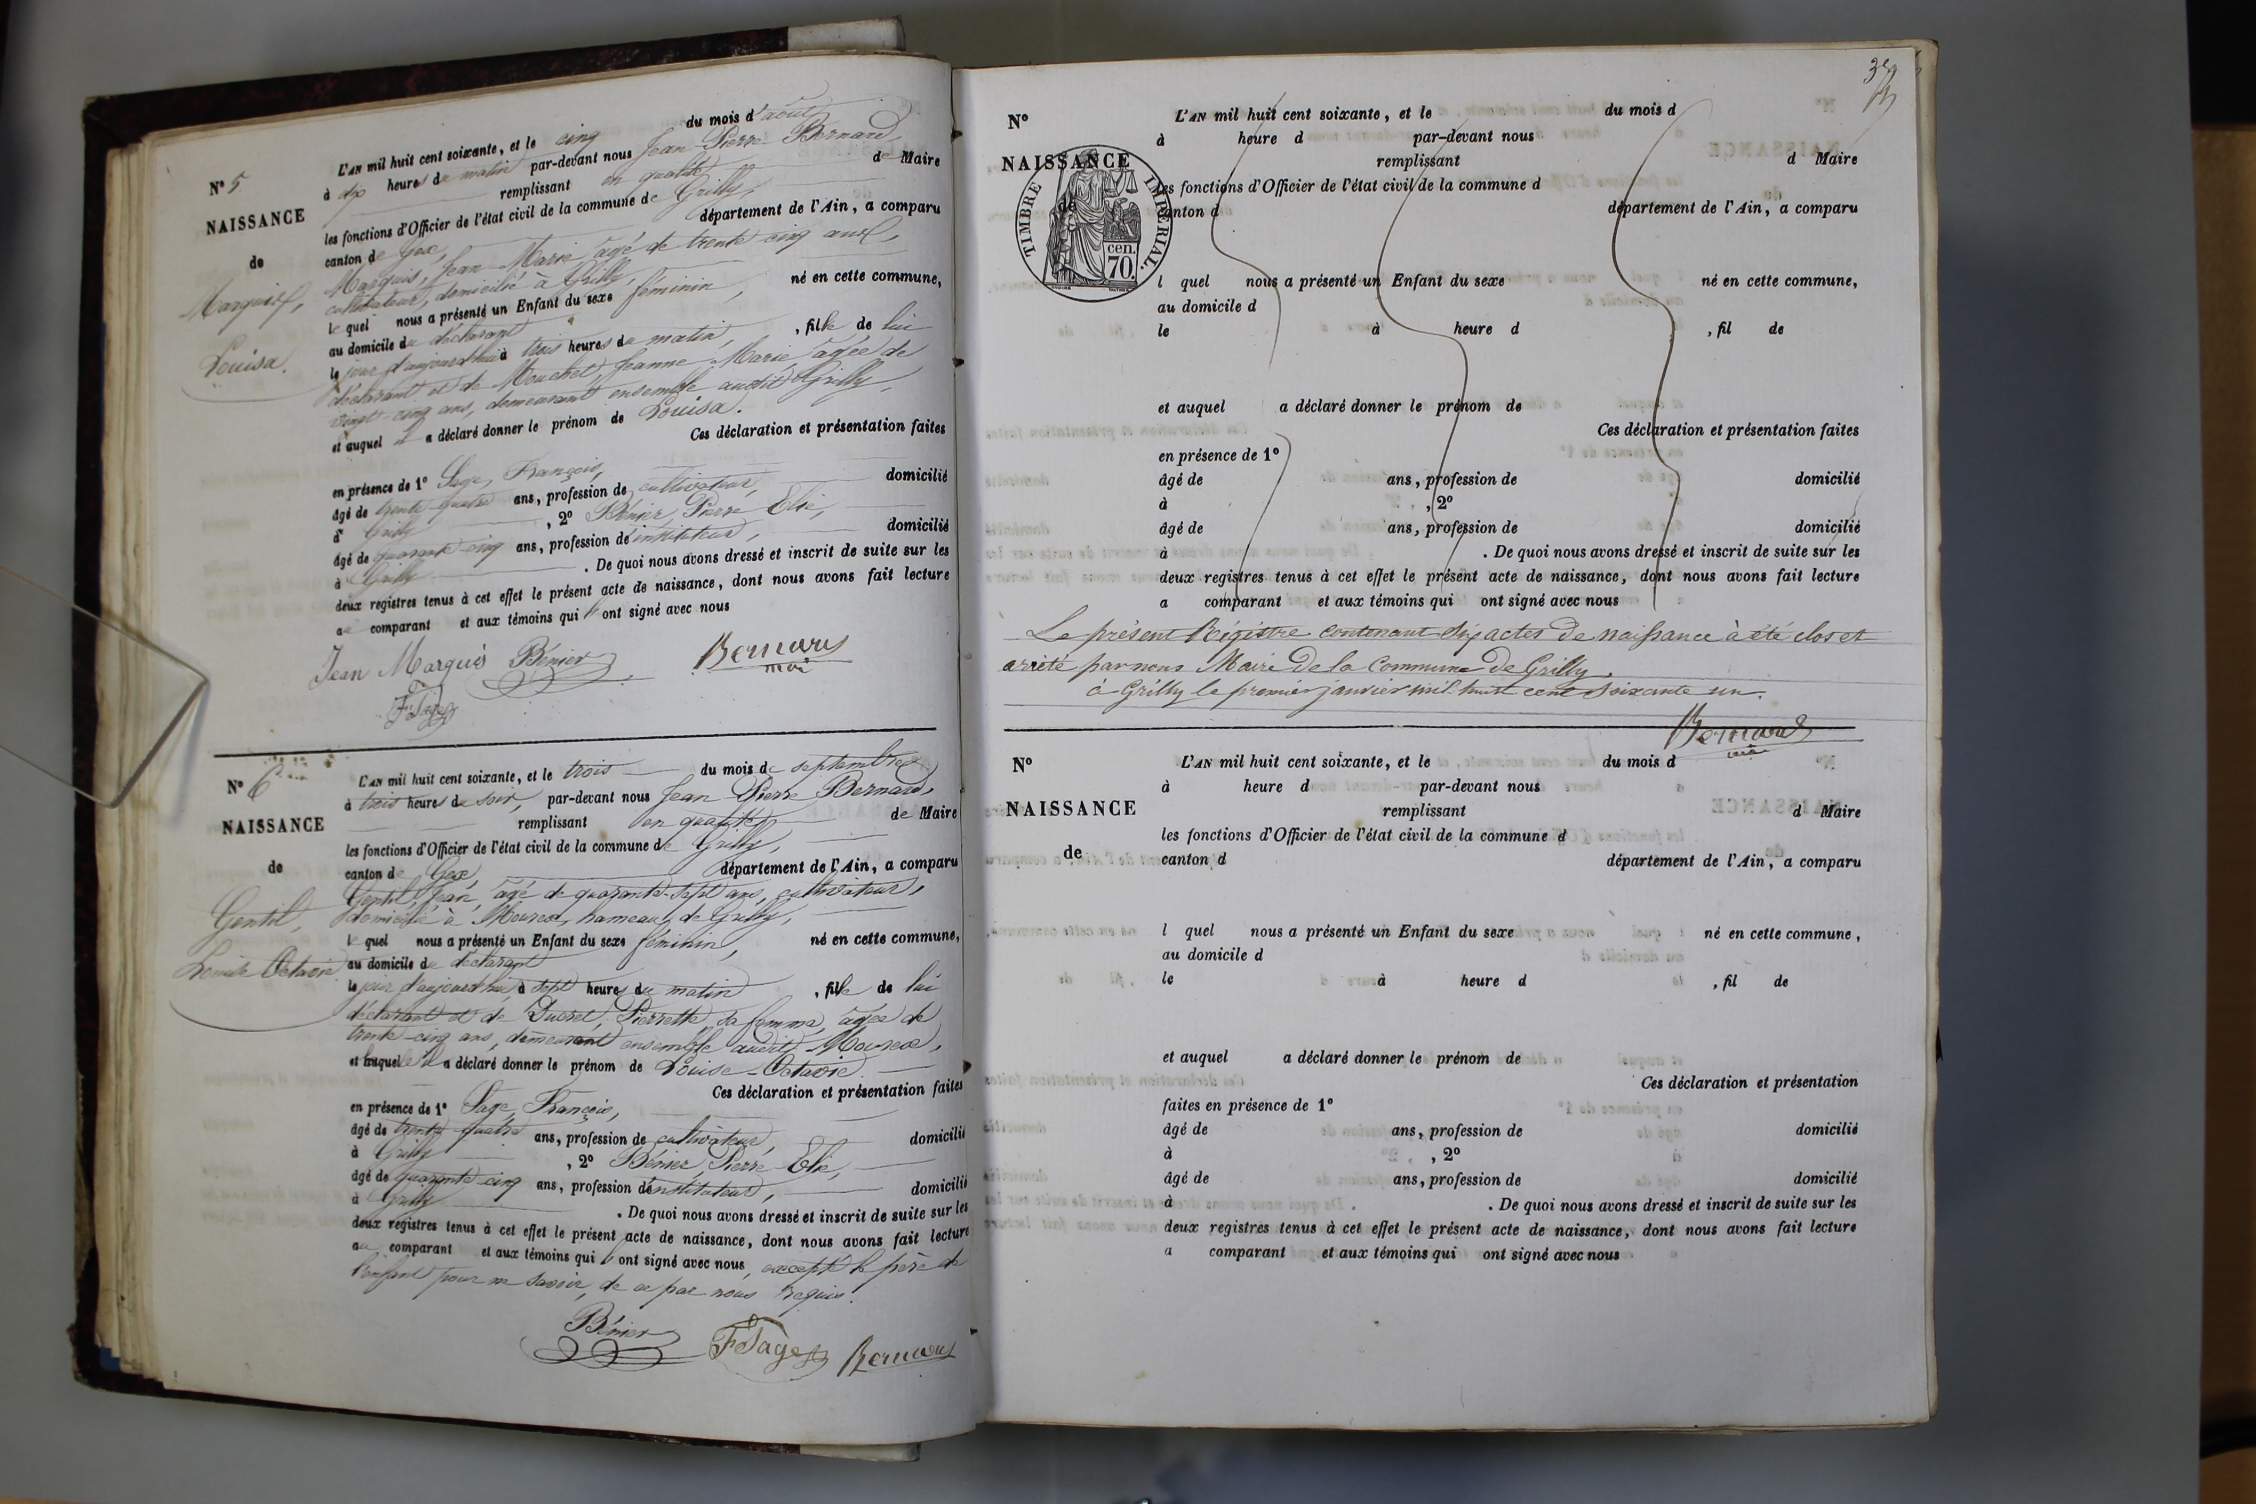 N° 5
NAISSANCE
de
Marquis,
Louisa.
L'AN mil huit cent soixante, et le cinq du mois d'août
à dix heures du matin par-devant nous Jean-Pierre Bernard,
remplissant en qualité de Maire
les fonctions d'Officier de l'état civil de la commune de Grilly,
canton de Gex, département de l'Ain, a comparu
Marquis, Jean-Marie âgé de trente cinq ans,
cultivateur, domicilié à Grilly,
le quel nous a présenté un Enfant du sexe féminin, né en cette commune,
au domicile du déclarant
le jour d'aujourd'hui à trois heures du matin, , fille de lui
déclarant et de Mouchet, Jeanne-Marie âgée de
vingt-cinq ans, demeurant ensemble audit Grilly,
et auquel il a déclaré donner le prénom de Louisa.
Ces déclaration et présentation faites
en présence de 1° Sage, François,
âgé de trente-quatre ans, profession de cultivateur, domicilié
à Grilly , 2° Bénier, Pierre-Elie,
âgé de quarante-cinq ans, profession de instituteur, domicilié
à Grilly . De quoi nous avons dressé et inscrit de suite sur les
deux registres tenus à cet effet le présent acte de naissance, dont nous avons fait lecture
au comparant et aux témoins qui ont signé avec nous
Jean Marquis Bénier Bernard
F Sage maire
N° 6
NAISSANCE
de
Gentil,
Louise Octavie
L'AN mil huit cent soixante, et le trois du mois de septembre
à trois heures du soir, par-devant nous Jean-Pierre Bernard,
remplissant en qualité de Maire
les fonctions d'Officier de l'état civil de la commune de Grilly,
canton de Gex, département de l'Ain, a comparu
Gentil, Jean, âgé de quarante-sept ans, cultivateur,
domicilié à Mourex, hameau de Grilly,
le quel nous a présenté un Enfant du sexe féminin, né en cette commune,
au domicile du déclarant
le jour d'aujourd'hui, à sept heures du matin , fille de lui
déclarant et de Ducret, Pierrette sa femme, âgée de
trente-cinq ans, demeurant ensemble audit Mourex,
et auquel il a déclaré donner le prénom de Louise-Octavie.
Ces déclaration et présentation faites
en présence de 1° Sage, François,
âgé de trente quatre ans, profession de cultivateur, domicilié
à Grilly , 2° Bénier, Pierre-Elie,
âgé de quarante-cinq ans, profession de instituteur, domicilié
à Grilly . De quoi nous avons dressé et inscrit de suite sur les
deux registres tenus à cet effet le présent acte de naissance, dont nous avons fait lecture
au comparant et aux témoins qui ont signé avec nous, excepté le père de
l'enfant pour ne savoir, de ce par nous requis.
Bénier F Sage Bernard
N°
NAISSANCE
de
TIMBRE IMPÉRIAL.
cen.
70.
L'AN mil huit cent soixante, et le du mois d
à heure d par-devant nous
remplissant d Maire
les fonctions d'Officier de l'état civil de la commune d
canton d département de l'Ain, a comparu
l quel nous a présenté un Enfant du sexe né en cette commune,
au domicile d
le à heure d , fil de
et auquel a déclaré donner le prénom de
Ces déclaration et présentation faites
en présence de 1°
âgé de ans, profession de domicilié
à , 2°
âgé de ans, profession de domicilié
à . De quoi nous avons dressé et inscrit de suite sur les
deux registres tenus à cet effet le présent acte de naissance, dont nous avons fait lecture
a comparant et aux témoins qui ont signé avec nous
Le présent Régistre contenant six actes de naissance à été clos et
arreté par nous Maire de la Commune de Grilly.
à Grilly le premier janvier mil huit cent soixante un.
Bernard
maire
N°
NAISSANCE
de
L'AN mil huit cent soixante, et le du mois d
à heure d par-devant nous
remplissant d Maire
les fonctions d'Officier de l'état civil de la commune d
canton d département de l'Ain, a comparu
l quel nous a présenté un Enfant du sexe né en cette commune,
au domicile d
le à heure d , fil de
et auquel a déclaré donner le prénom de
Ces déclaration et présentation
faites en présence de 1°
âgé de ans, profession de domicilié
à , 2°
âgé de ans, profession de domicilié
à . De quoi nous avons dressé et inscrit de suite sur les
deux registres tenus à cet effet le présent acte de naissance, dont nous avons fait lecture
a comparant et aux témoins qui ont signé avec nous